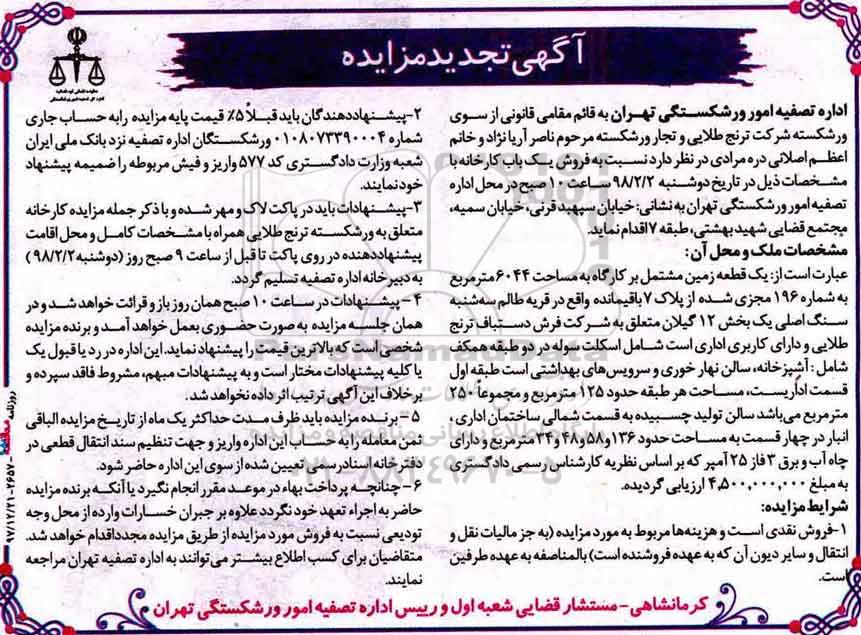 آگهی تجدید مزایده
اداره تصفیه امور ورشکستگی تهران به قائم مقامی قانونی از سوی
ورشکسته شرکت ترنج طلایی و تجار ورشکسته مرحوم ناصر آریا نژاد و خانم
اعظم اصلانی دره مرادی در نظر دارد نسبت به فروش یک باب کارخانه با
مشخصات ذیل در تاریخ دوشنبه ۹۸/۲/۲ ساعت ۱۰ صبح در محل اداره
تصفیه امور ورشکستگی تهران به نشانی: خیابان سپهبد قرنی، خیابان سمیه،
مجتمع قضایی شهید بهشتی، طبقه ۷ اقدام نماید.
مشخصات ملک و محل آن:
عبارت است از: یک قطعه زمین مشتمل بر کارگاه به مساحت ۶۰۴۴ مترمربع
به شماره ۱۹۶ مجزی شده از پلاک ۷ باقیمانده واقع در قریه طالم سه‌شنبه
سنگ اصلی یک بخش ۱۲ گیلان متعلق به شرکت فرش دستباف ترنج
طلایی و دارای کاربری اداری است شامل اسکلت سوله در دو طبقه همکف
شامل: آشپزخانه، سالن نهار خوری و سرویس‌های بهداشتی است طبقه اول
قسمت اداریست، مساحت هر طبقه حدود ۱۲۵ مترمربع و مجموعاً ۲۵۰
مترمربع می‌باشد سالن تولید چسبیده به قسمت شمالی ساختمان اداری،
انبار در چهار قسمت به مساحت حدود ۱۳۶و۵۸و۴۸و۳۴ مترمربع و دارای
چاه آب و برق ۳ فاز ۲۵ آمپر که بر اساس نظریه کارشناس رسمی دادگستری
به مبلغ ۴,۵۰۰,۰۰۰,۰۰۰ ارزیابی گردیده.
شرایط مزایده:
۱-فروش نقدی است و هزینه‌ها مربوط به مورد مزایده (به جز مالیات نقل و
انتقال و سایر دیون آن که به عهده فروشنده است) بالمناصفه به عهده طرفین
است.
۲-پیشنهاددهندگان باید قبلاً ۵٪ قیمت پایه مزایده را به حساب جاری
شماره ۰۱۰۸۰۷۳۳۹۰۰۰۴ ورشکستگان اداره تصفیه نزد بانک ملی ایران
شعبه وزارت دادگستری کد ۵۷۷ واریز و فیش مربوطه را ضمیمه پیشنهاد
خود نمایند.
۳-پیشنهادات باید در پاکت لاک و مهر شده و با ذکر جمله مزایده کارخانه
متعلق به ورشکسته ترنج طلایی همراه با مشخصات کامل و محل اقامت
پیشنهاددهنده در روی پاکت تا قبل از ساعت ۹ صبح روز (دوشنبه ۹۸/۲/۲)
به دبیرخانه اداره تصفیه تسلیم گردد.
۴-پیشنهادات در ساعت ۱۰ صبح همان روز باز و قرائت خواهد شد و در
همان جلسه مزایده به صورت حضوری بعمل خواهد آمد و برنده مزایده
شخصی است که بالاترین قیمت را پیشنهاد نماید. این اداره در رد یا قبول یک
یا کلیه پیشنهادات مختار است و به پیشنهادات مبهم، مشروط فاقد سپرده و
برخلاف این آگهی ترتیب اثر داده نخواهد شد.
۵-برنده مزایده باید ظرف مدت حداکثر یک ماه از تاریخ مزایده الباقی
ثمن معامله را به حساب این اداره واریز و جهت تنظیم سند انتقال قطعی در
دفترخانه اسناد رسمی تعیین شده از سوی این اداره حاضر شود.
۶-چنانچه پرداخت بهاء در موعد مقرر انجام نگیرد یا آنکه برنده مزایده
حاضر به اجراء تعهد خود نگردد علاوه بر جبران خسارات وارده از محل وجه
تودیعی نسبت به فروش مورد مزایده از طریق مزایده مجدد اقدام خواهد شد.
متقاضیان برای کسب اطلاع بیشتر می‌توانند به اداره تصفیه تهران مراجعه
نمایند.
کرمانشاهی-مستشار قضایی شعبه اول و رییس اداره تصفیه امور ورشکستگی تهران
ParsNamadData
۰۲۱-۸۸۳۴۹۶۷۰-۵